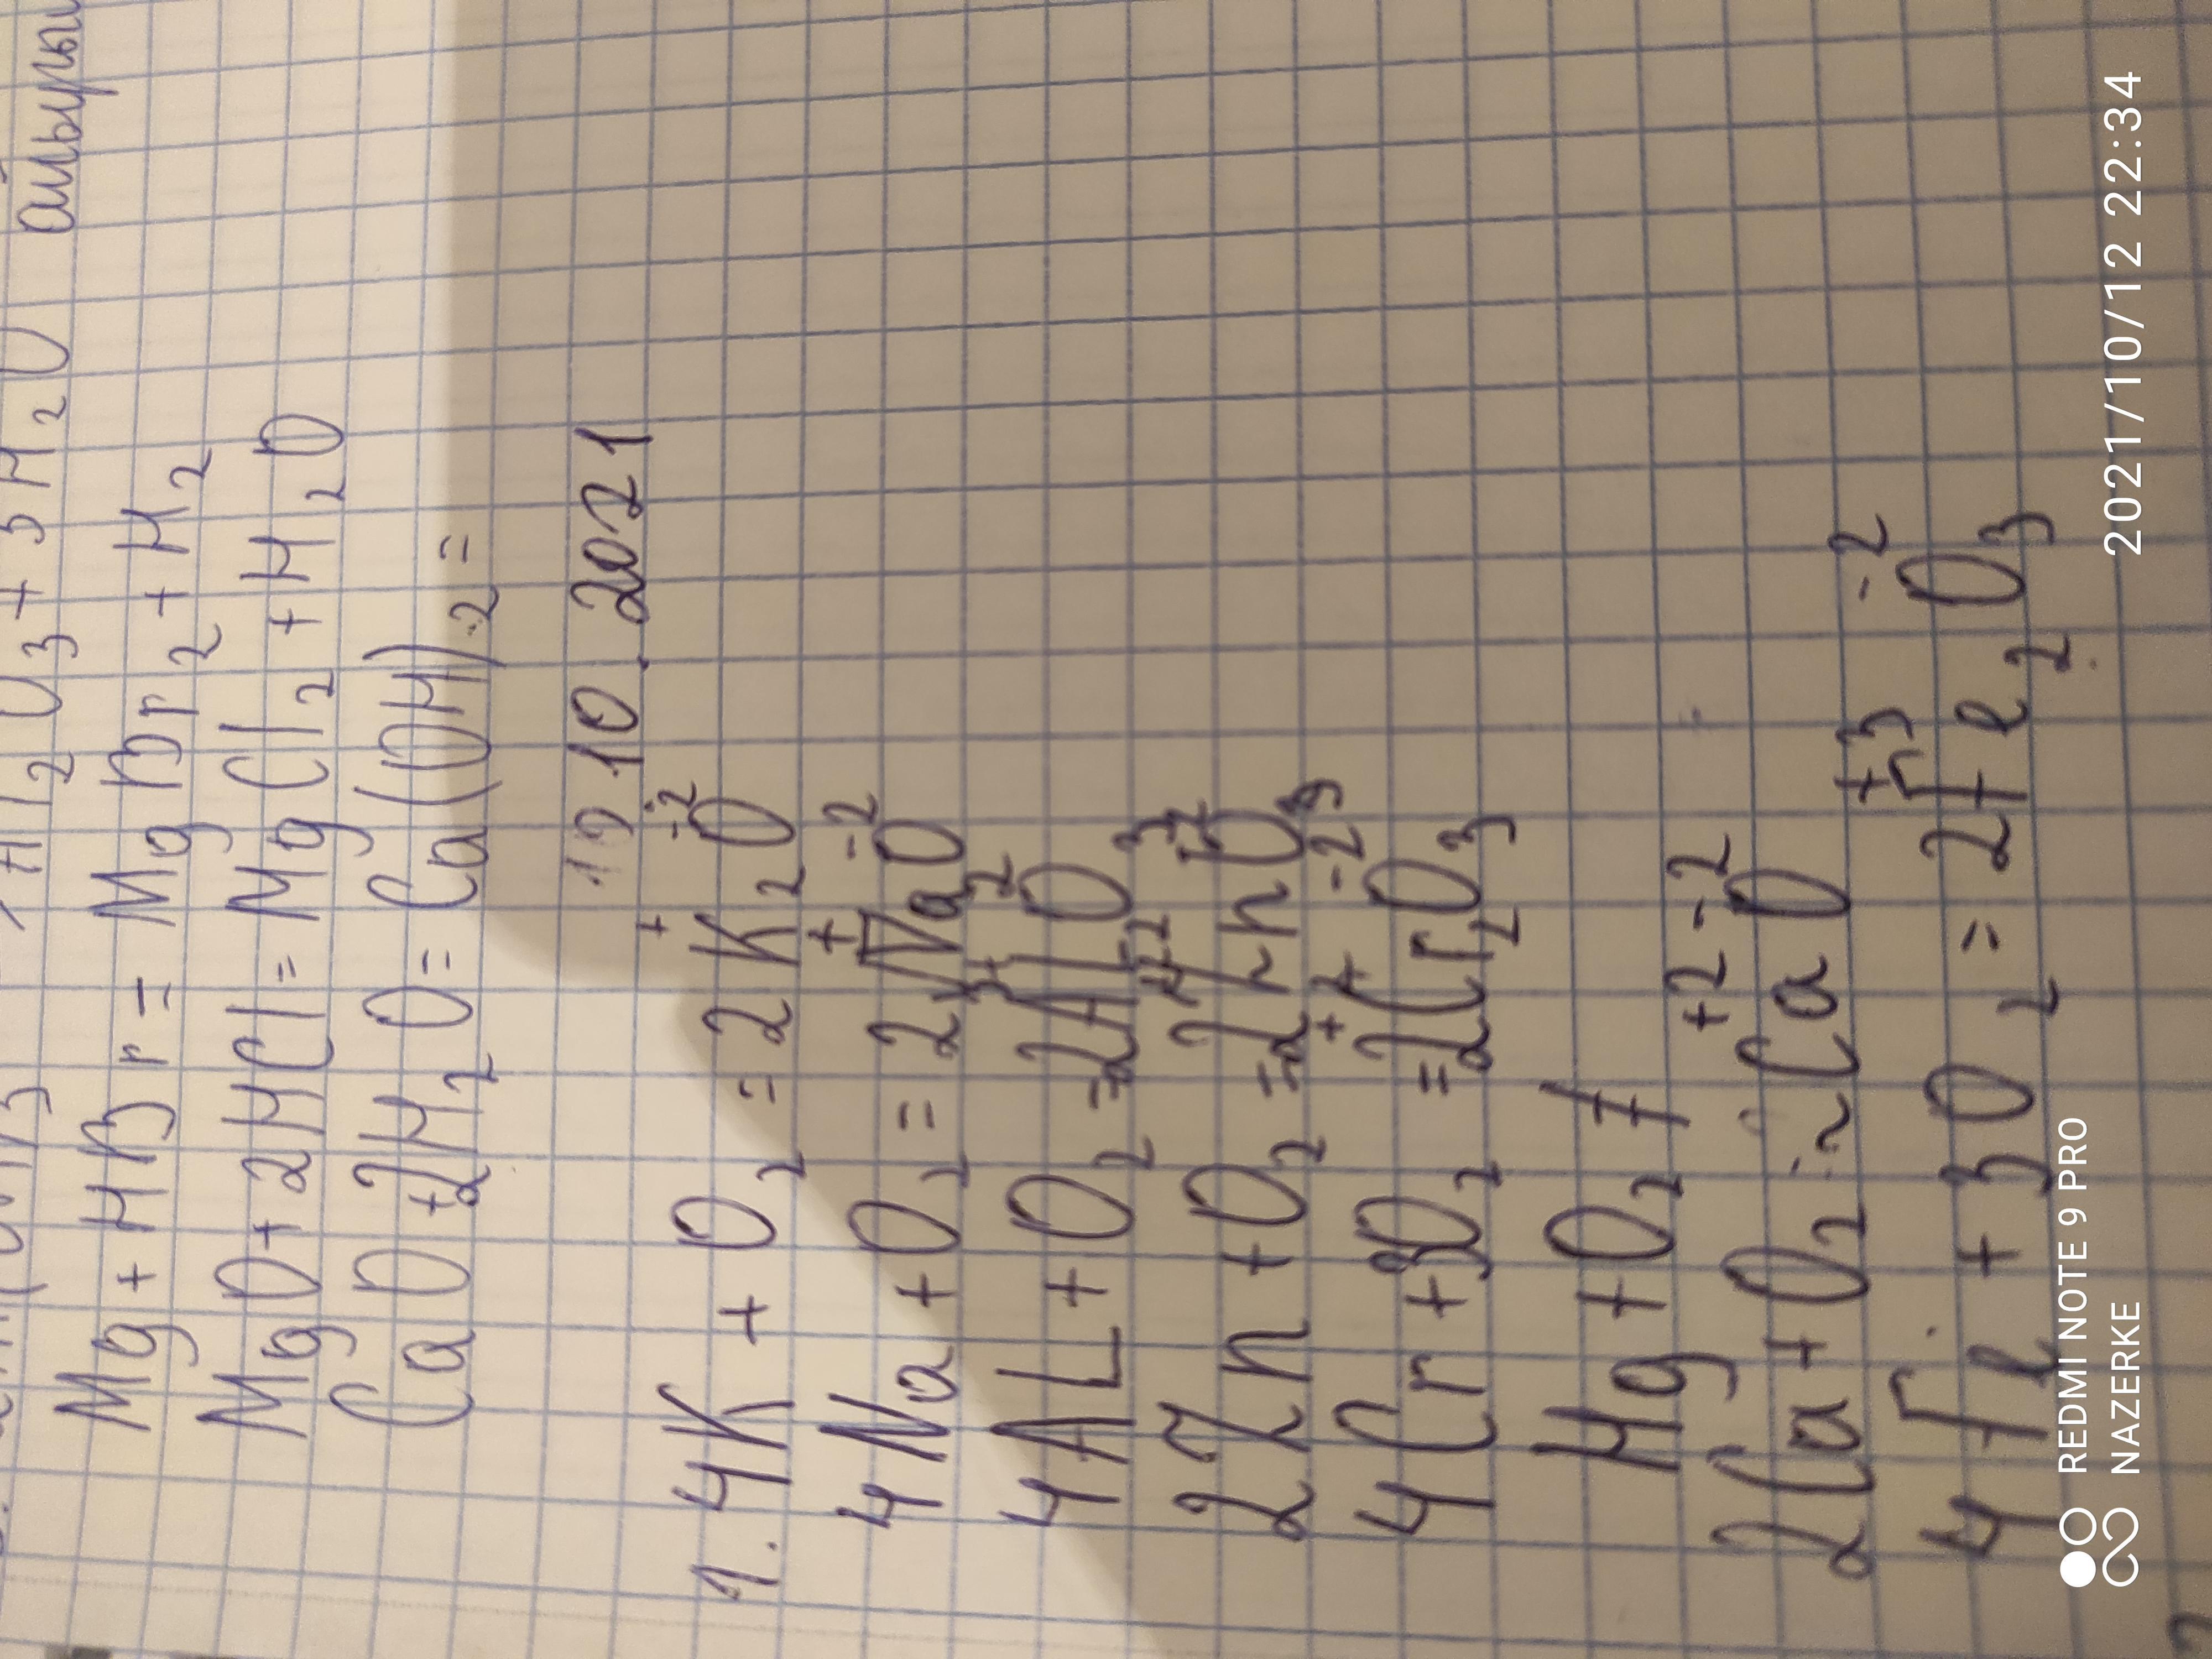 Al₂O₃ + 3H₂O
Mg + HBr = MgBr₂ + H₂
MgO + 2HCl = MgCl₂ + H₂O
CaO + 2H₂O = Ca(OH)₂ =
10.2021
1. 4K + O₂ = 2K₂⁺O⁻²
4Na + O₂ = 2Na₂⁺O⁻²
4AL + O₂ = 2AL₂O₃
2Zn + O₂ = 2ZnO
4Cr + 3O₂ = 2Cr₂O₃
Hg + O₂ ≠
2Ca + O₂ = Ca⁺²O⁻²
4Fe + 3O₂ = 2Fe₂⁺³O₃⁻²
REDMI NOTE 9 PRO
NAZERKE
2021/10/12 22:34